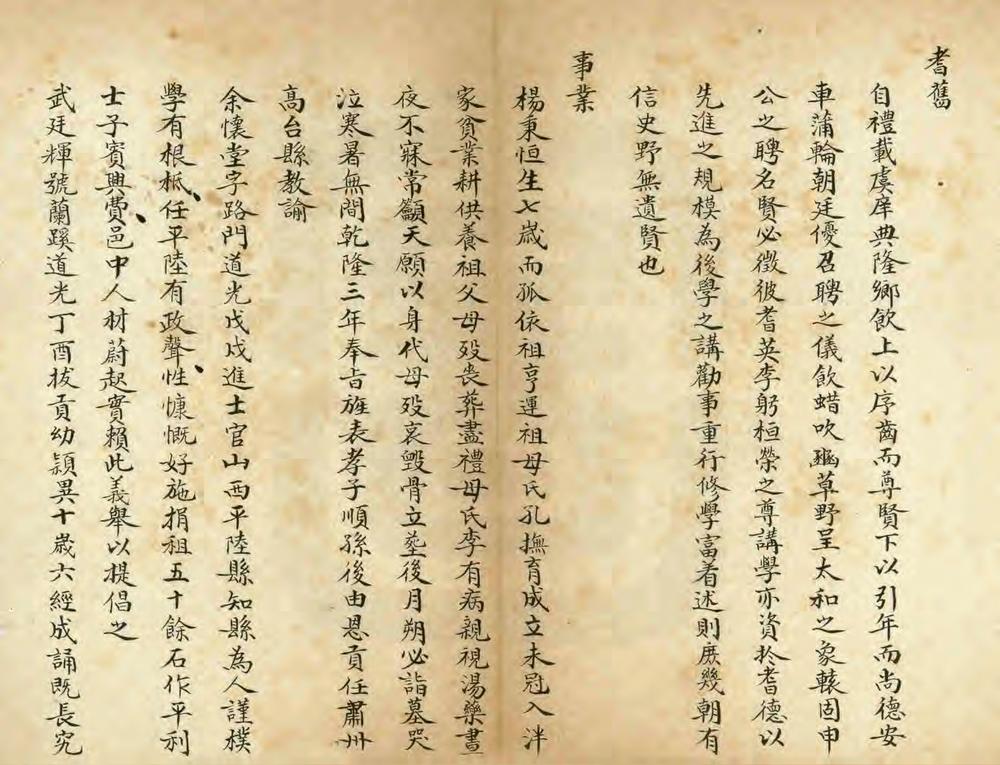 耆舊
自禮載虞庠典隆鄉飲上以序齒而尊賢下以引年而尚德安
車蒲輪朝廷優召聘之儀飲蜡吹豳草野呈太和之象轅固申
公之聘名賢必徵彼耆英李躬桓榮之尊講學亦資於耆德以
先進之規模為後學之講勸事重行修學富着述則庶幾朝有
信史野無遺賢也
事業
楊秉恒生七歲而孤依祖亨運祖母氏孔撫育成立未冠入泮
家貧業耕供養祖父母歿喪葬盡禮母氏李有病親視湯藥晝
夜不寐常籲天願以身代母歿哀毀骨立塟後月朔必詣墓哭
泣寒暑無間乾隆三年奉旨旌表孝子順孫後由恩貢任肅州
高台縣教諭
余懷堂字路門道光戊戌進士官山西平陸縣知縣為人謹樸
學有根柢任平陸有政聲性慷慨好施捐租五十餘石作平利
士子賓興費邑中人材蔚起實賴此義舉以提倡之
武廷輝號蘭蹊道光丁酉拔貢幼穎異十歲六經成誦既長究